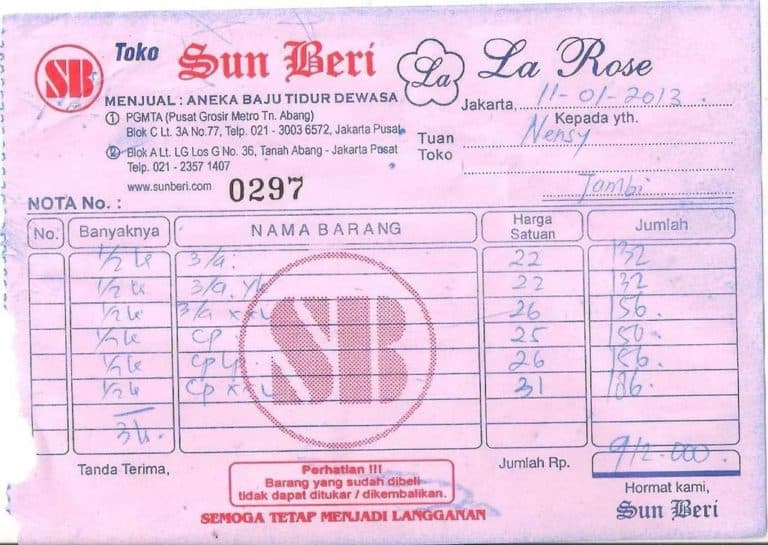 SB Toko Sun Beri La La Rose
MENJUAL : ANEKA BAJU TIDUR DEWASA
① PGMTA (Pusat Grosir Metro Tn. Abang)
Blok C Lt. 3A No.77, Telp. 021 - 3003 6572, Jakarta Pusat
② Blok A Lt. LG Los G No. 36, Tanah Abang - Jakarta Pusat
Telp. 021 - 2357 1407
www.sunberi.com
Jakarta, 11-01-2013.
Kepada yth.
Tuan Nensy
Toko
Jambi
NOTA No. : 0297
No. Banyaknya NAMA BARANG Harga Satuan Jumlah
1/2 3/a. 22 132
1/2 3/a. 22 132
1/2 3/a xxL 26 156.
1/2 Cp. 25 150.
1/2 Cp 26 156.
1/2 Cp xxL 31 186.
SB
Tanda Terima,
Perhatian !!!
Barang yang sudah dibeli
tidak dapat ditukar / dikembalikan.
SEMOGA TETAP MENJADI LANGGANAN
Jumlah Rp. 912.000.
Hormat kami,
Sun Beri